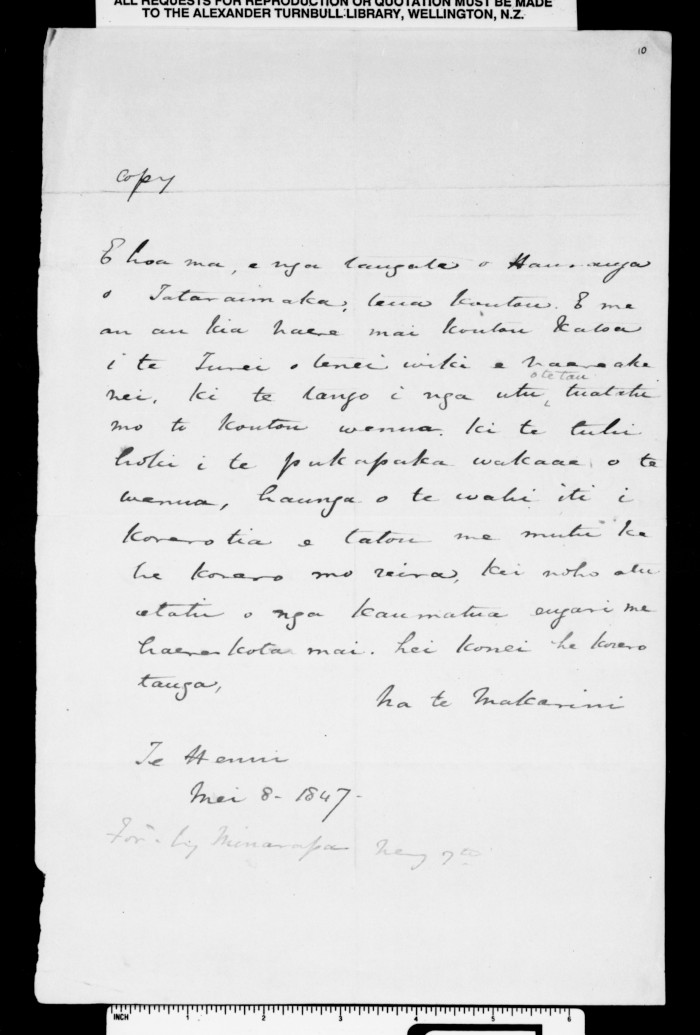 ALL REQUESTS FOR REPRODUCTION OR QUOTATION MUST BE MADE
TO THE ALEXANDER TURNBULL LIBRARY, WELLINGTON, N.Z.
10
copy
E hoa ma, e nga tangata o Hauranga
o Tataraimaka, tena koutou. E me
an au kia haere mai koutou katoa
i te Turei o tenei wiki e haere ake
nei, ki te tango i nga utu o te tau tuatatu
mo to koutou wenua. ki te tuhi
hoki i te pukapuka wakaae o te
wenua, haunga o te wahi iti i
korerotia e tatou me mutu ka
he korero mo reira, kei noho atu
etahi o nga kaumatua engari me
haere kota mai. hei konei he korero
tanga,
Na te Makarini
Te Henui
Mei 8 - 1847 -
by Minarapa
INCH 1 2 3 4 5 6